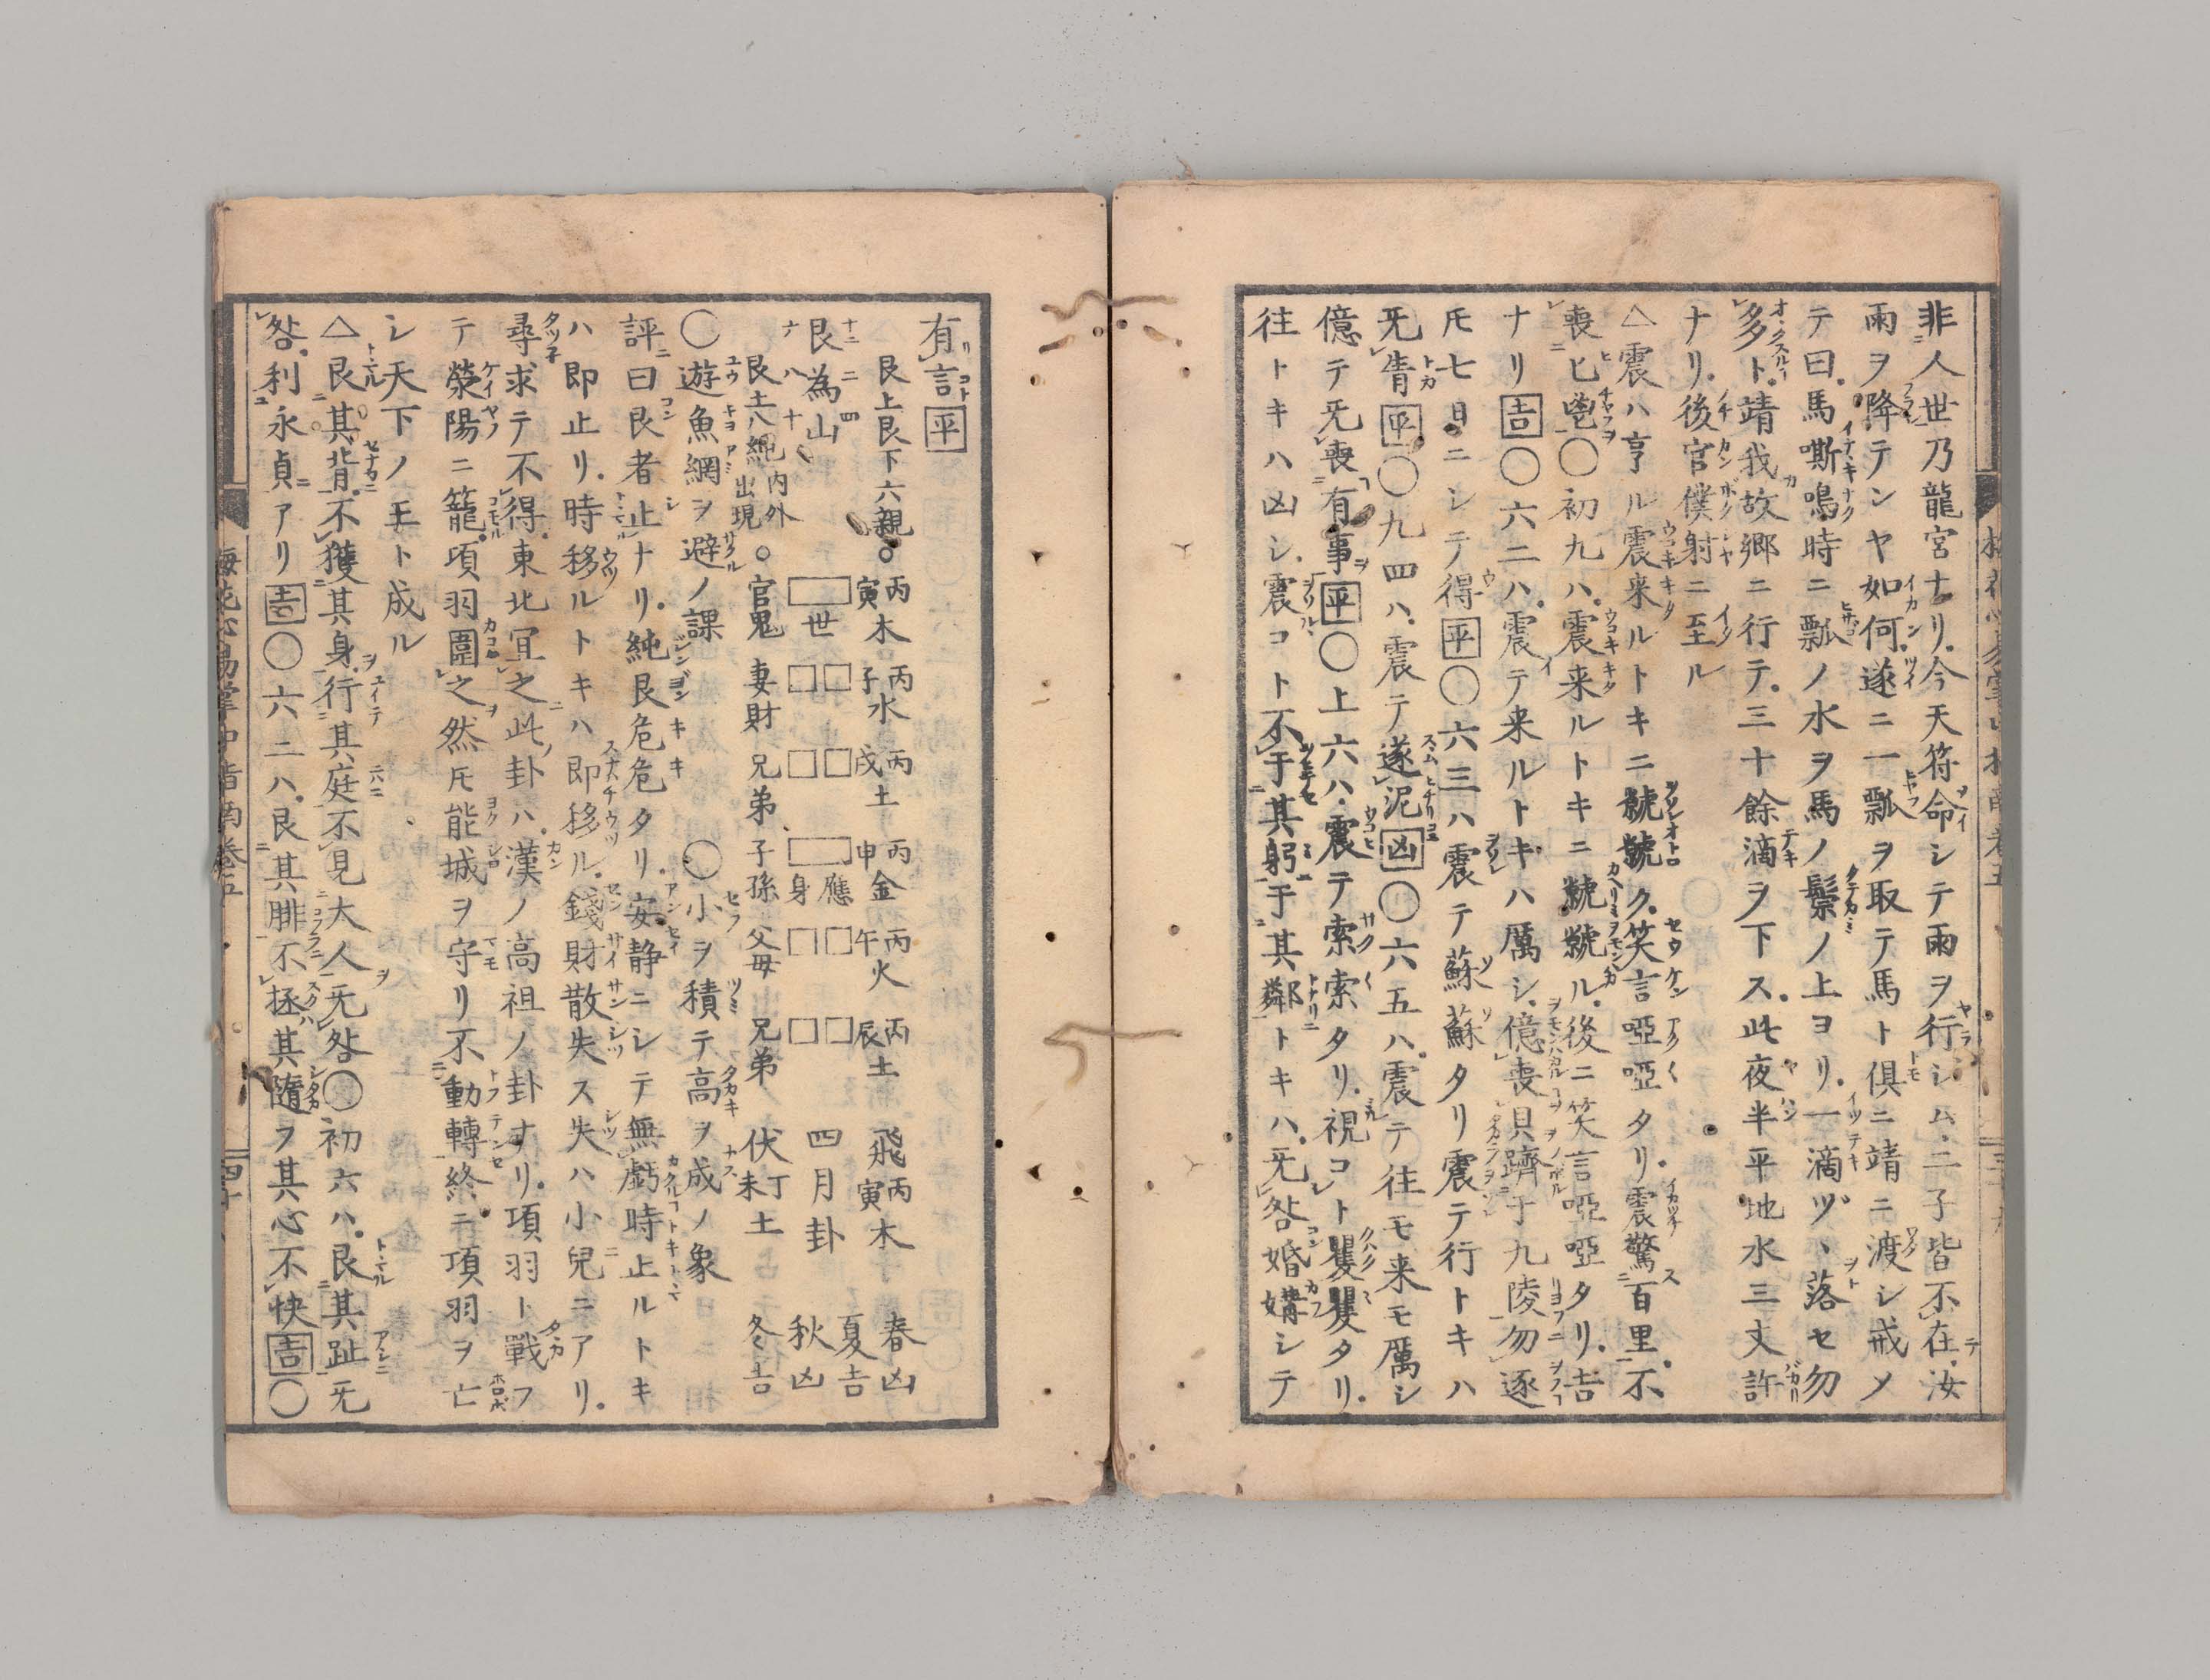 非人世乃龍宮ナリ今天符命シテ雨ヲ行シム二子皆不在汝
雨ヲ降テンヤ如何遂ニ一瓢ヲ取テ馬ト倶ニ靖ニ渡シ戒メ
テ曰馬嘶鳴時ニ瓢ノ水ヲ馬ノ鬃ノ上ヨリ一滴ヅヽ落セ勿
多ト靖我故郷ニ行テ三十餘滴ヲ下ス此夜半平地水三丈許
ナリ後官僕射ニ至ル
△震ハ亨ル震来ルトキニ虩虩ク笑言啞啞タリ震驚百里不
喪匕鬯〇初九ハ震来ルトキニ虩虩ル後ニ笑言啞啞タリ吉
ナリ吉〇六二ハ震テ来ルトキハ厲シ億喪貝躋于九陵勿逐
㞮七日ニシテ得平〇六三ハ震テ蘇蘇タリ震テ行トキハ
无眚平〇九四ハ震テ遂泥凶〇六五ハ震テ往モ来モ厲シ
億テ无喪有事平〇上六ハ震テ索索タリ視コト矍矍タリ
往トキハ凶シ震コト不于其躬于其鄰トキハ无咎婚媾シテ
有言平
艮上艮下六親〇 丙寅木 丙子水 丙戌土 丙申金 丙午火 丙辰土 飛丙寅木 春凶
夏吉
艮為山 世 應 身 四月卦 秋凶
艮土八純内外出現〇官鬼 妻財 兄弟 子孫 父母 兄弟 伏丁未土 冬吉
〇遊魚網ヲ避ノ課 〇小ヲ積テ高ヲ成ノ象
評曰艮者止ナリ純艮危危タリ安静ニシテ無虧時止ルトキ
ハ即止リ時移ルトキハ即移ル錢財散失ス失ハ小兒ニアリ
尋求テ不得東北宜之此卦ハ漢ノ高祖ノ卦ナリ項羽ト戰フ
テ滎陽ニ籠項羽圍之然㞮能城ヲ守リ不動轉終ニ項羽ヲ亡
シ天下ノ王ト成ル
△艮其背不獲其身行其庭不見大人无咎〇初六ハ艮其趾无
咎利永貞アリ吉〇六二ハ艮其腓不拯其隨ヲ其心不快吉〇
梅花心易掌中指南卷五